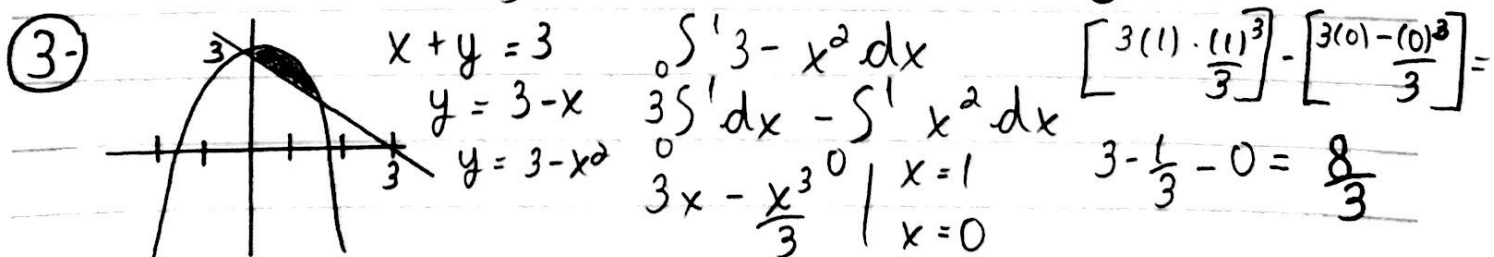 3-
3
3
x + y = 3
y = 3 - x
y = 3 - x²
₀∫¹ 3 - x² dx
3 ₀∫¹ dx - ₀∫¹ x² dx
3x - x³/3 | x = 1
x = 0
[3(1) · (1)³/3] - [3(0) - (0)³/3] =
3 - 1/3 - 0 = 8/3